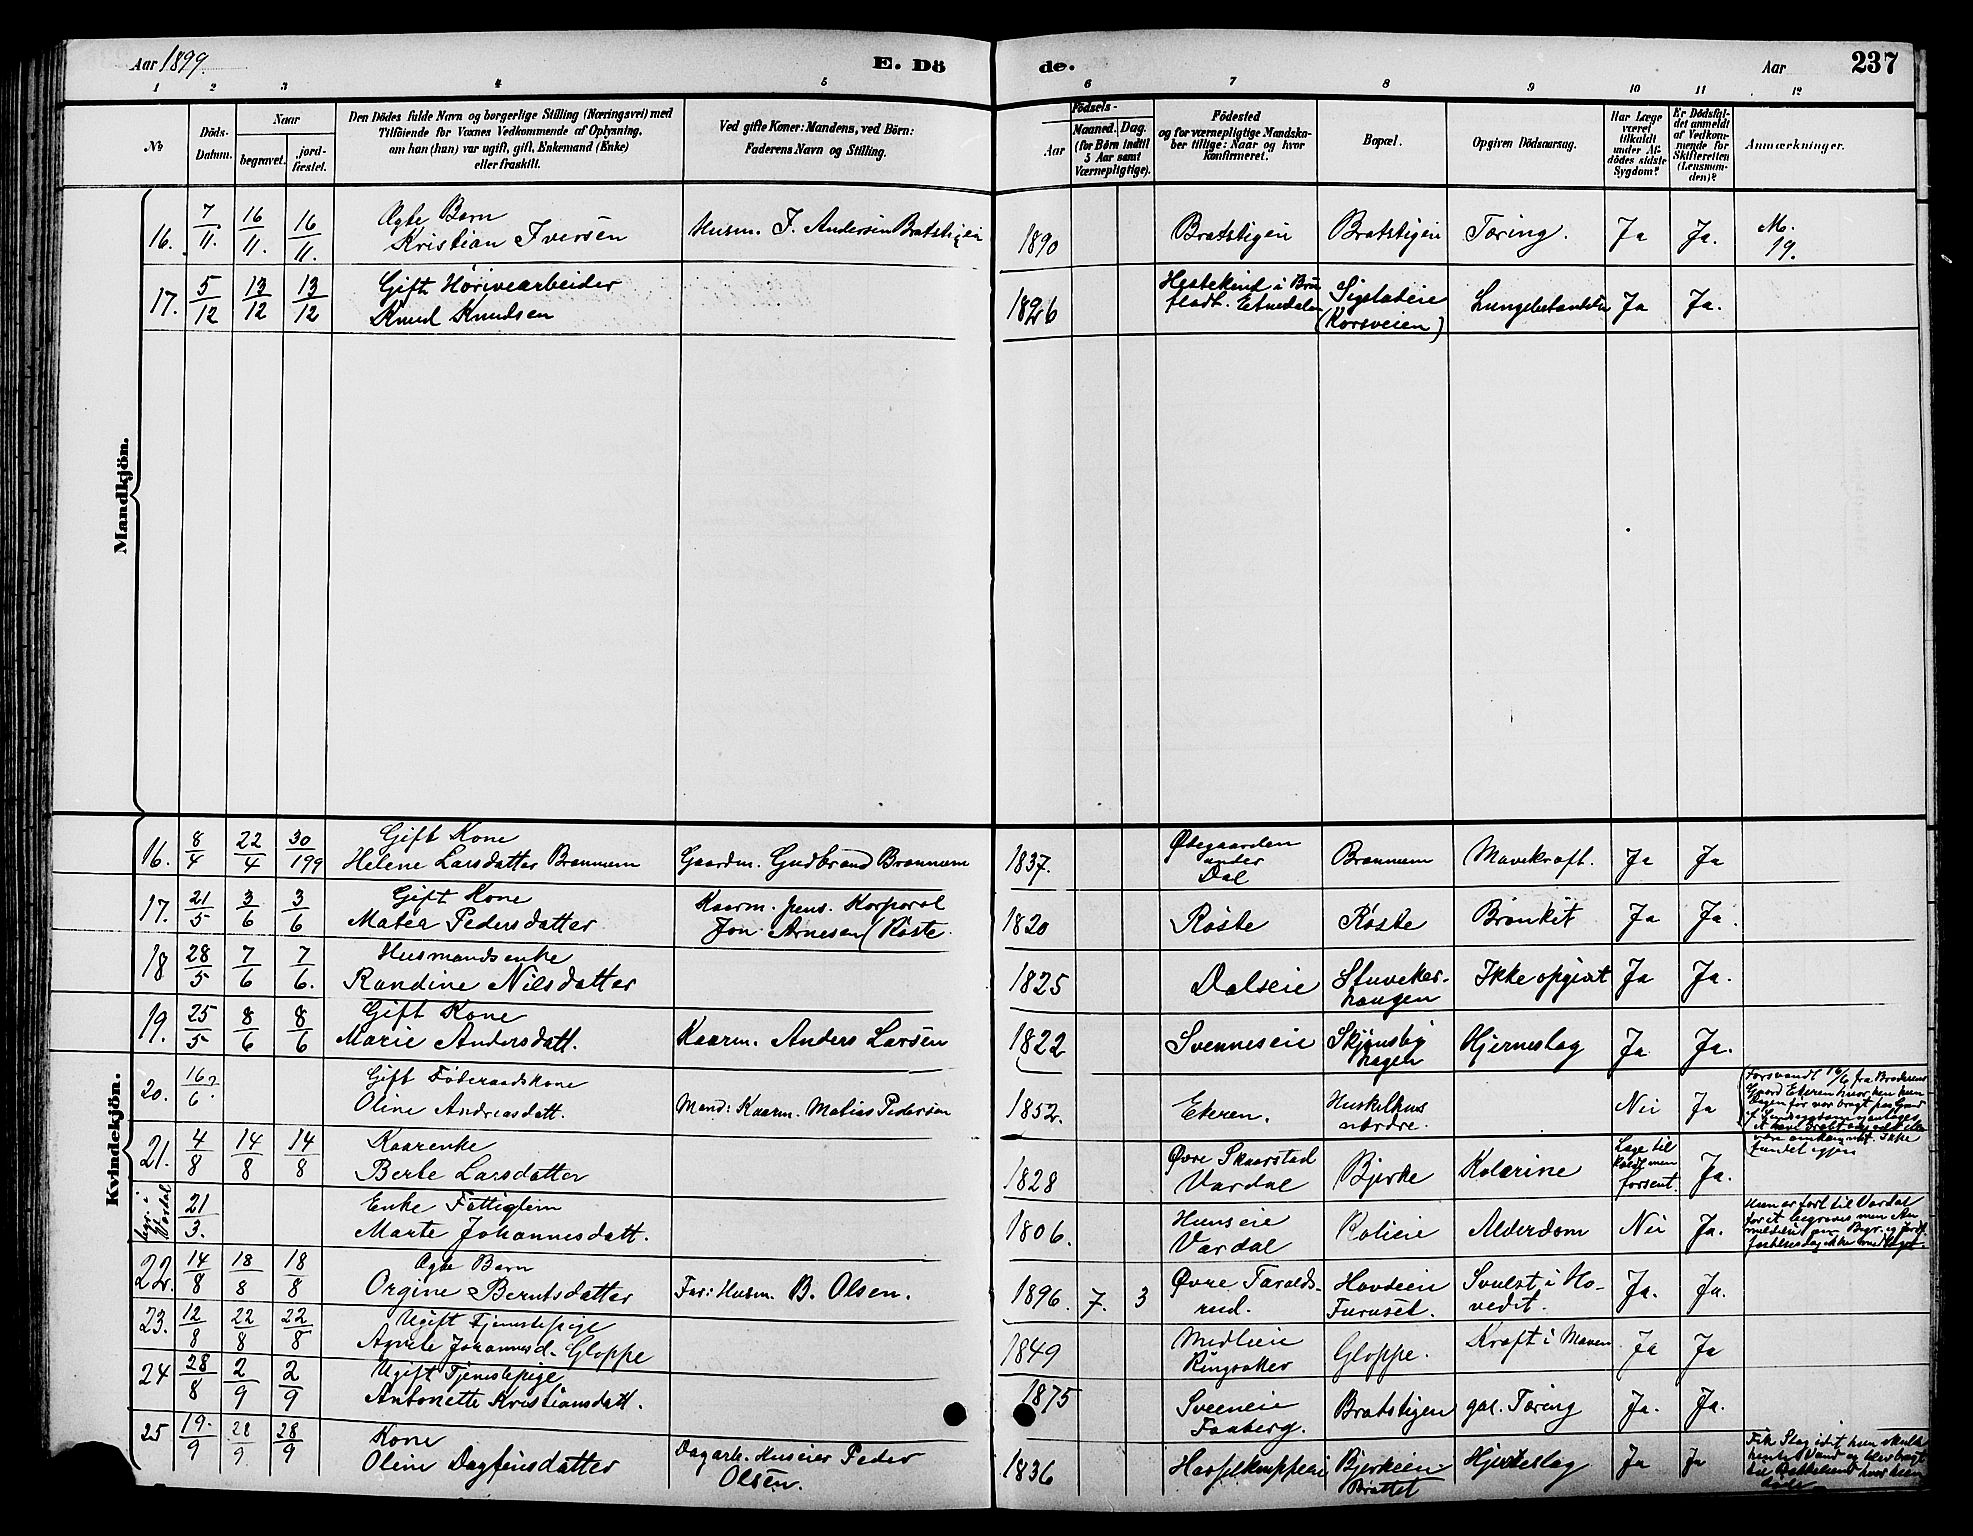 Aar 1899. E. Dö de. Aar 237
1 2 3 4 5 6 7 8 9 10 11 12
No
Döds-Datum.
Naar
begravet.
jord-fæstet.
Den Dödes fulde Navn og borgerlige Stilling (Næringsvei) med
Tilföiende for Voxnes Vedkommende af Oplysning,
om han (hun) var ugift, gift, Enkemand (Enke)
eller fraskilt.
Ved gifte Koner: Mandens, ved Börn:
Faderens Navn og Stilling.
Födsels-
Aar
Maaned. Dag.
(for Börn indtil
5 Aar samt
Værnepligtige).
Födested
og for værnepligtige Mandska-
ber tillige: Naar og hvor
konfirmeret.
Bopæl.
Opgiven Dödsaarsag.
Har Læge
været
tilkaldt
under Af-
dödes sidste
Sygdom?
Er Dödsfal-
det anmeldt
af Vedkom-
mende for
Skifteretten
(Lensman-
den)?
Anmærkninger.
Mandkjön.
16. 7/11. 16/11. 16/11. Ægte Barn
Kristian Iversen Husm. I. Andersen Bratstigen 1890 Bratstigen Bratstigen Tæring. Ja Ja. M. 19.
17. 5/12 13/12 13/12 Gift
Knud Knudsen 1826 Etnedalen (Korsveien) Ja Ja.
Kvindekjön.
16. 8/4 22/4 30/199 Gift Kone
Helene Larsdatter Brannum Gaardm. Gudbrand Brannum 1837. Ødegaarden under Dal Brannum Mavekræft. Ja Ja
17. 21/5 3/6 3/6 Gift Kone
Matea Pedersdatter Kaarm. pens. Korporal
Jon Arnesen Røste 1820 Røste Røste Bronkit Ja Ja.
18 28/5 7/6 7/6. Husmandsenke
Randine Nilsdatter 1825 Dalseie Stuveker-
haugen Ikke opgivet Ja Ja.
19. 25/5 8/6 8/6 Gift Kone
Marie Andersdatt. Kaarm. Anders Larsen 1822 Svenneseie Skjønsby
hagen Hjerneslag Ja Ja.
20. 16?/6. Gift Føderaadskone
Oline Andreasdatt. Mand: Kaarm. Matias Pedersen 1852. Ekeren. Huskelhus
nordre. Nei Ja Forsvandt 16/6 fra Broderens
Gaard Ekeren hvor hen hun
Dagen før var bragt
Ikke
fundet igjen
21. 4/8 14/8 14/8 Kaarenke
Berte Larsdatter 1828 Øvre Skaarstad
Vardal Bjerke Kolerine Læge til
kaldt men
forsent. Ja.
begr. i
Vardal 21/3. Enke Fattiglem
Marte Johannesdatt. 1806. Hunseie
Vardal Kolieie Alderdom Nei Ja. Hun er ført til Vardal
for at begraves men
22. 14/8 18/8 18/8 Ægte Barn
Orgine Berntsdatter Far: Husm. B. Olsen. 1896. 7. 3 Øvre Taralds-
rud. Hovdeien
Furuset. Svulst i Ho-
vedet. Ja. Ja.
23. 12/8 22/8 22/8 Ugift Tjenestepige
Agnete Johannesd. Gloppe 1849 Medleie
Ringsaker Gloppe. Kræft i Maven Ja Ja
24 28/8 2/9 2/9 Ugift Tjenestepige
Antonette Kristiansdatt. 1875 Sveeneie
Faaberg. Bratstigen gal. Tæring Ja. Ja.
25 19./9 28/9. 28/9 Kone
Oline Dagfinsdatter Dagarb. Huseier Peder
Olsen. 1836 Bjerkeien
Brattet Hjerteslag Ja Ja Fik Slag idet hun skulde
hente Vand og blev bragt
til hvor hun
døde